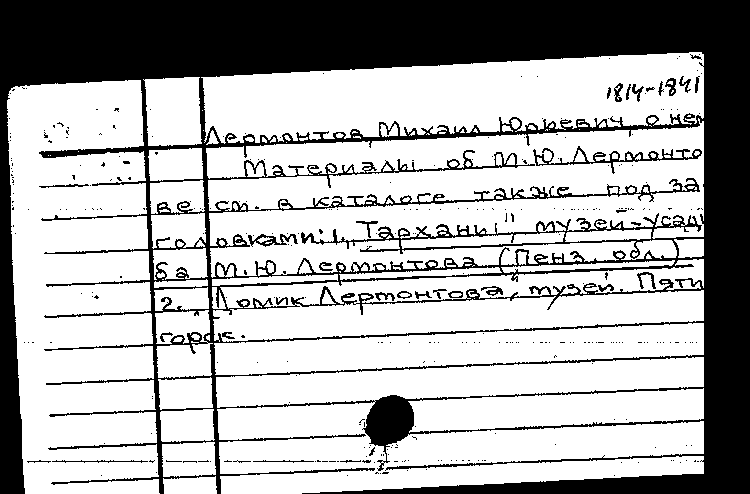 1814-1841
Лермонтов, Михаил Юрьевич, о нем
Материалы об М.Ю. Лермонто
ве см. в каталоге также под за
головками: 1. „Тарханы", музей-усадь
ба М.Ю. Лермонтова (Пенз. обл.)
2. „Домик Лермонтова", музей. Пяти
горск.